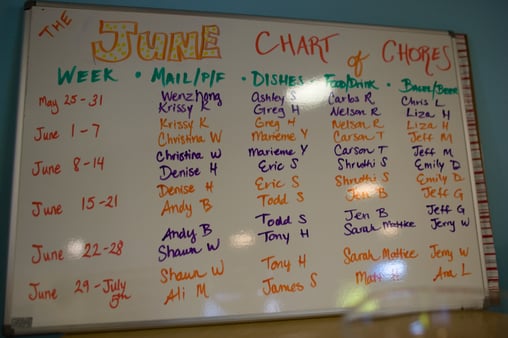 THE JUNE CHART of CHORES
WEEK • MAIL/P/F • DISHES • Food/Drink • Bagel/Beer
May 25-31 Wenzhong Ashley S Carlos R Chris L
Krissy K Greg H Nelson R Liza H
June 1-7 Krissy K Greg H Nelson R Liza H
Christina W Marieme Y Carson T Jeff M
June 8-14 Christina W Marieme Y Carson T Jeff M
Denise H Eric S Shruthi S Emily D
June 15-21 Denise H Eric S Shruthi S Emily D
Andy B Todd S Jen B Jeff G
June 22-28 Andy B Todd S Jen B Jeff G
Shawn W Tony H Sarah Jerry W
June 29-July 5th Shawn W Tony H Sarah Jerry W
Ali M James S Ana L